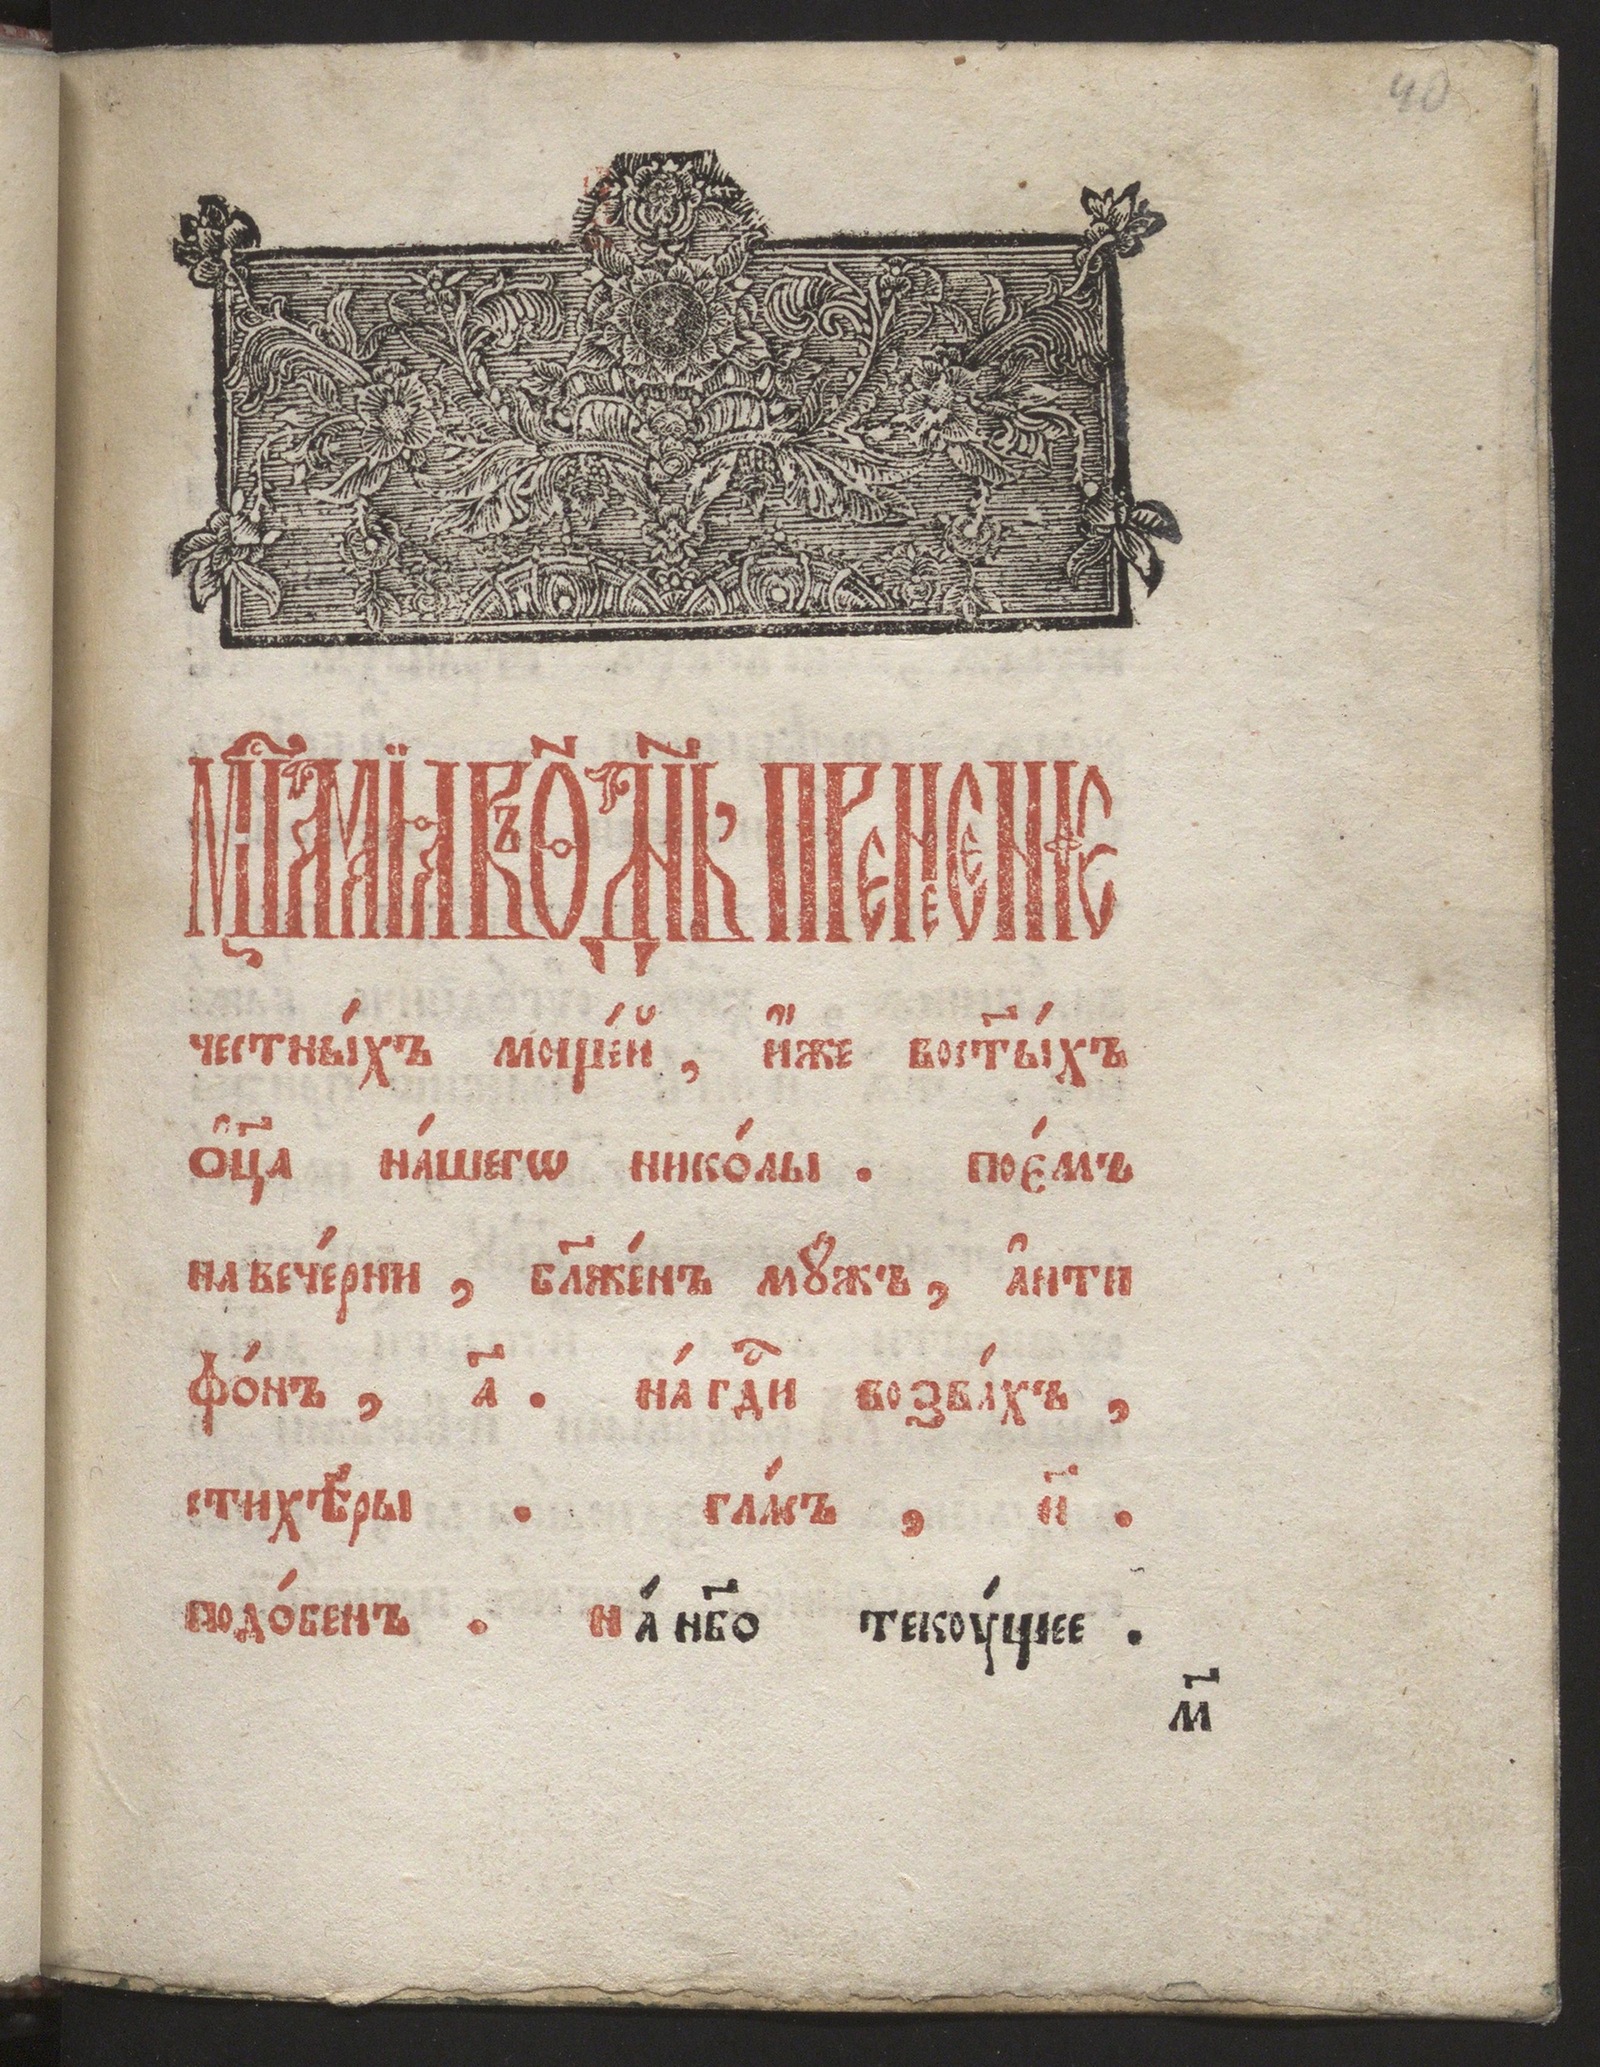 40
мц҃а маїа въ ѳ҃ дн҃ь пренесенїе
честны́хъ моще́й, и҆́же во ст҃ы́хъ
ѻ҆ц҃а на́шегѡ нико́лы. пое́мъ
на вече́рни, бл҃же́нъ мꙋ́жъ, а҆нти
фо́нъ, а҃. на́ гдⷭ҇и возва́хъ,
стихѣ́ры. гла́съ, и҃.
подо́бенъ. на́ нб҃о текоу́щее.
м҃